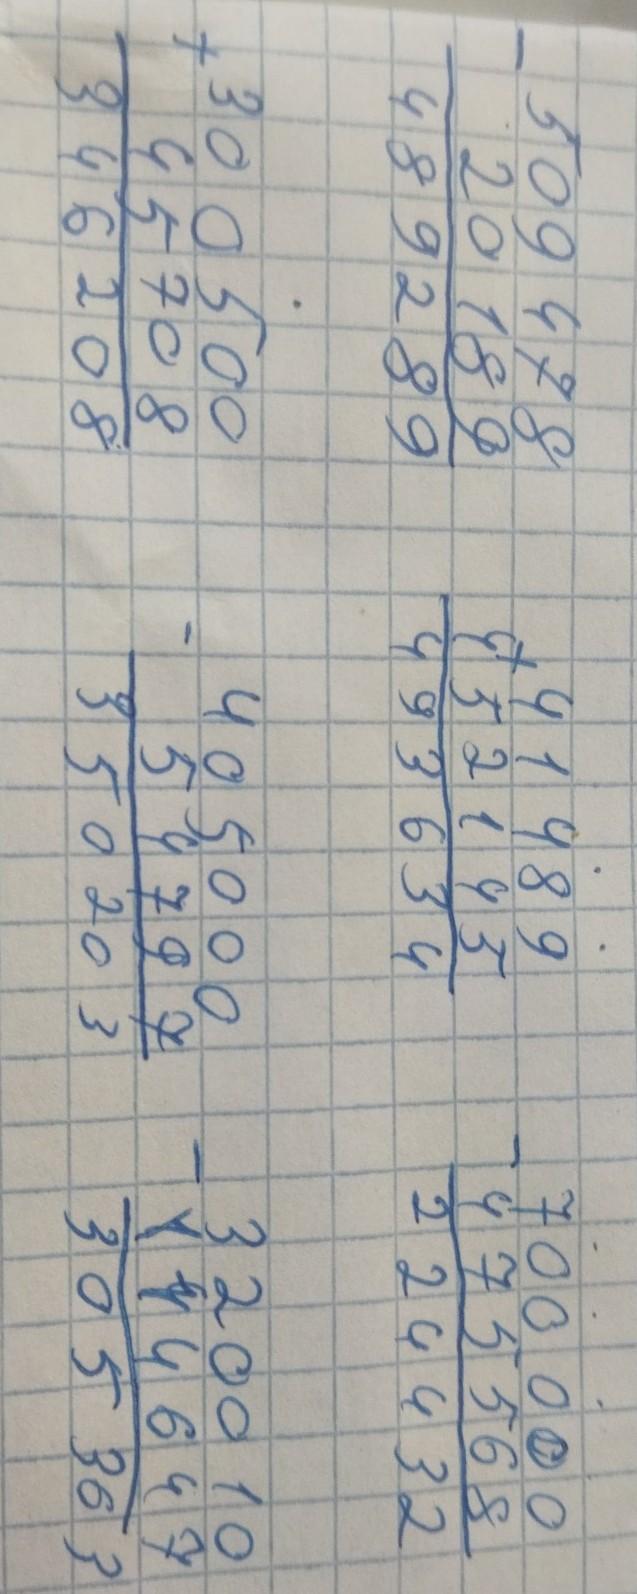 - 509478
20189
489289
+ 41489
452145
493634
- 700000
475568
224432
+ 300500
45708
346208
- 405000
54797
350203
- 320010
14647
305363